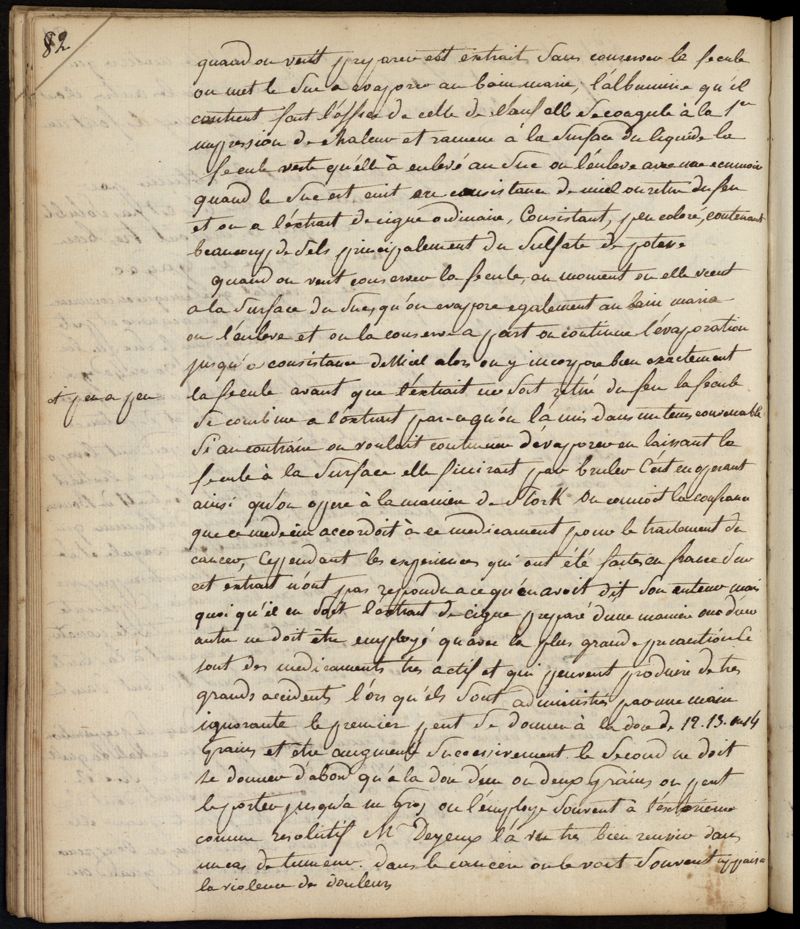 82
quand on veut preparer cet extrait sans conserver la fecule
on met le suc a evaporer au bain marie, l'albumine qu'il
contient fait l'office de celle de l'œuf elle se coagule à la 1ere
impression de chaleur et ramene à la surface du liquide la
fecule verte qu'elle à enlevé au suc on l'enleve avec une ecumoire
quand le suc est cuit en consistance de miel on retire du feu
et on a l'extrait de cigue ordinaire, Consistant, peu coloré, contenant
beaucoup de sels principalement du sulfate de potasse
quand on veut conserver la fecule, au moment ou elle vient
a la surface du suc qu'on evapore egalement au bain marie
on l'enleve et on la conserve a part on continue l'évaporation
jusqu'a consistance de Miel alors on y incorpore bien exactement
et peu a peu
la fecule avant que l'extrait ne soit retiré du feu la fecule
se combine a l'extrait parcequ'on la mis dans un tems convenable
Si au contraire on voulait continuer d'évaporer en laissant la
fecule à la surface elle finirait par bruler C'est en operant
ainsi qu'on opere à la maniere de Stork On connoit la confiance
que ce medecin accordoit à ce medicament pour le traitement du
cancer, Cependant les experiences qui ont été faites en france sur
cet extrait n'ont pas repondu a ce qu'en avoit dit son auteur mais
quoi qu'il en soit l'extrait de cigue preparé d'une maniere ou d'une
autre ne doit être employé qu'avec la plus grande precaution Ce
sont des medicaments tres actif et qui peuvent produire de tres
grands accidents l'ors qu'ils sont administrés par une main
ignorante le premier peut se donner à la dose de 12. 13. ou 14
Grains et être augmenté successivement le second ne doit
se donner d'abord qu'a la dose d'un ou deux Grains on peut
le porter jusqu'a un Gros on l'employe souvent à l'exterieur
comme resolutif Mr Deyeux l'à vu tres bien reussir dans
un cas de tumeur. dans le cancer on le voit souvent appaiser
la violence des douleurs